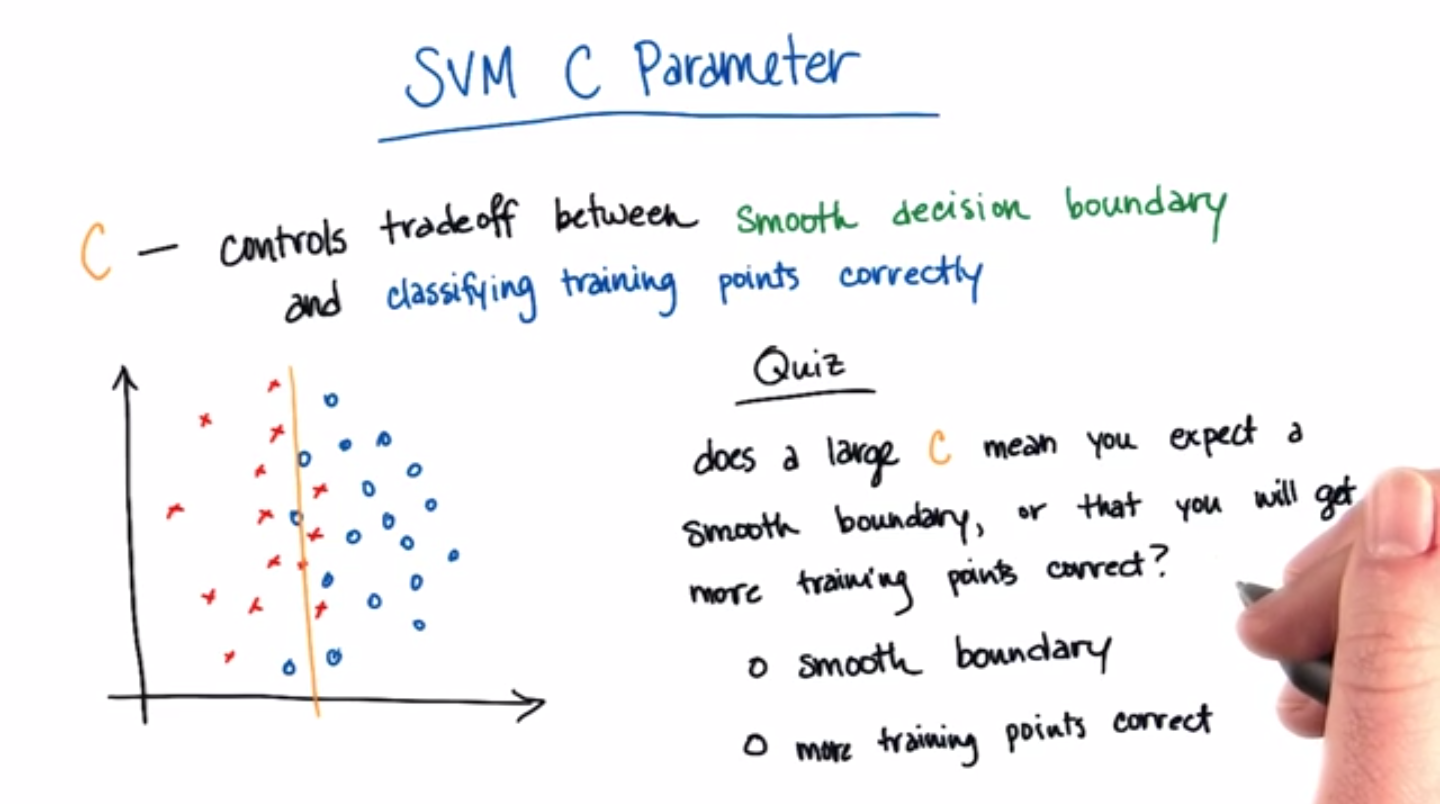 SVM C Parameter
C — controls tradeoff between smooth decision boundary
and classifying training points correctly
Quiz
does a large C mean you expect a
smooth boundary, or that you will get
more training points correct?
o smooth boundary
o more training points correct